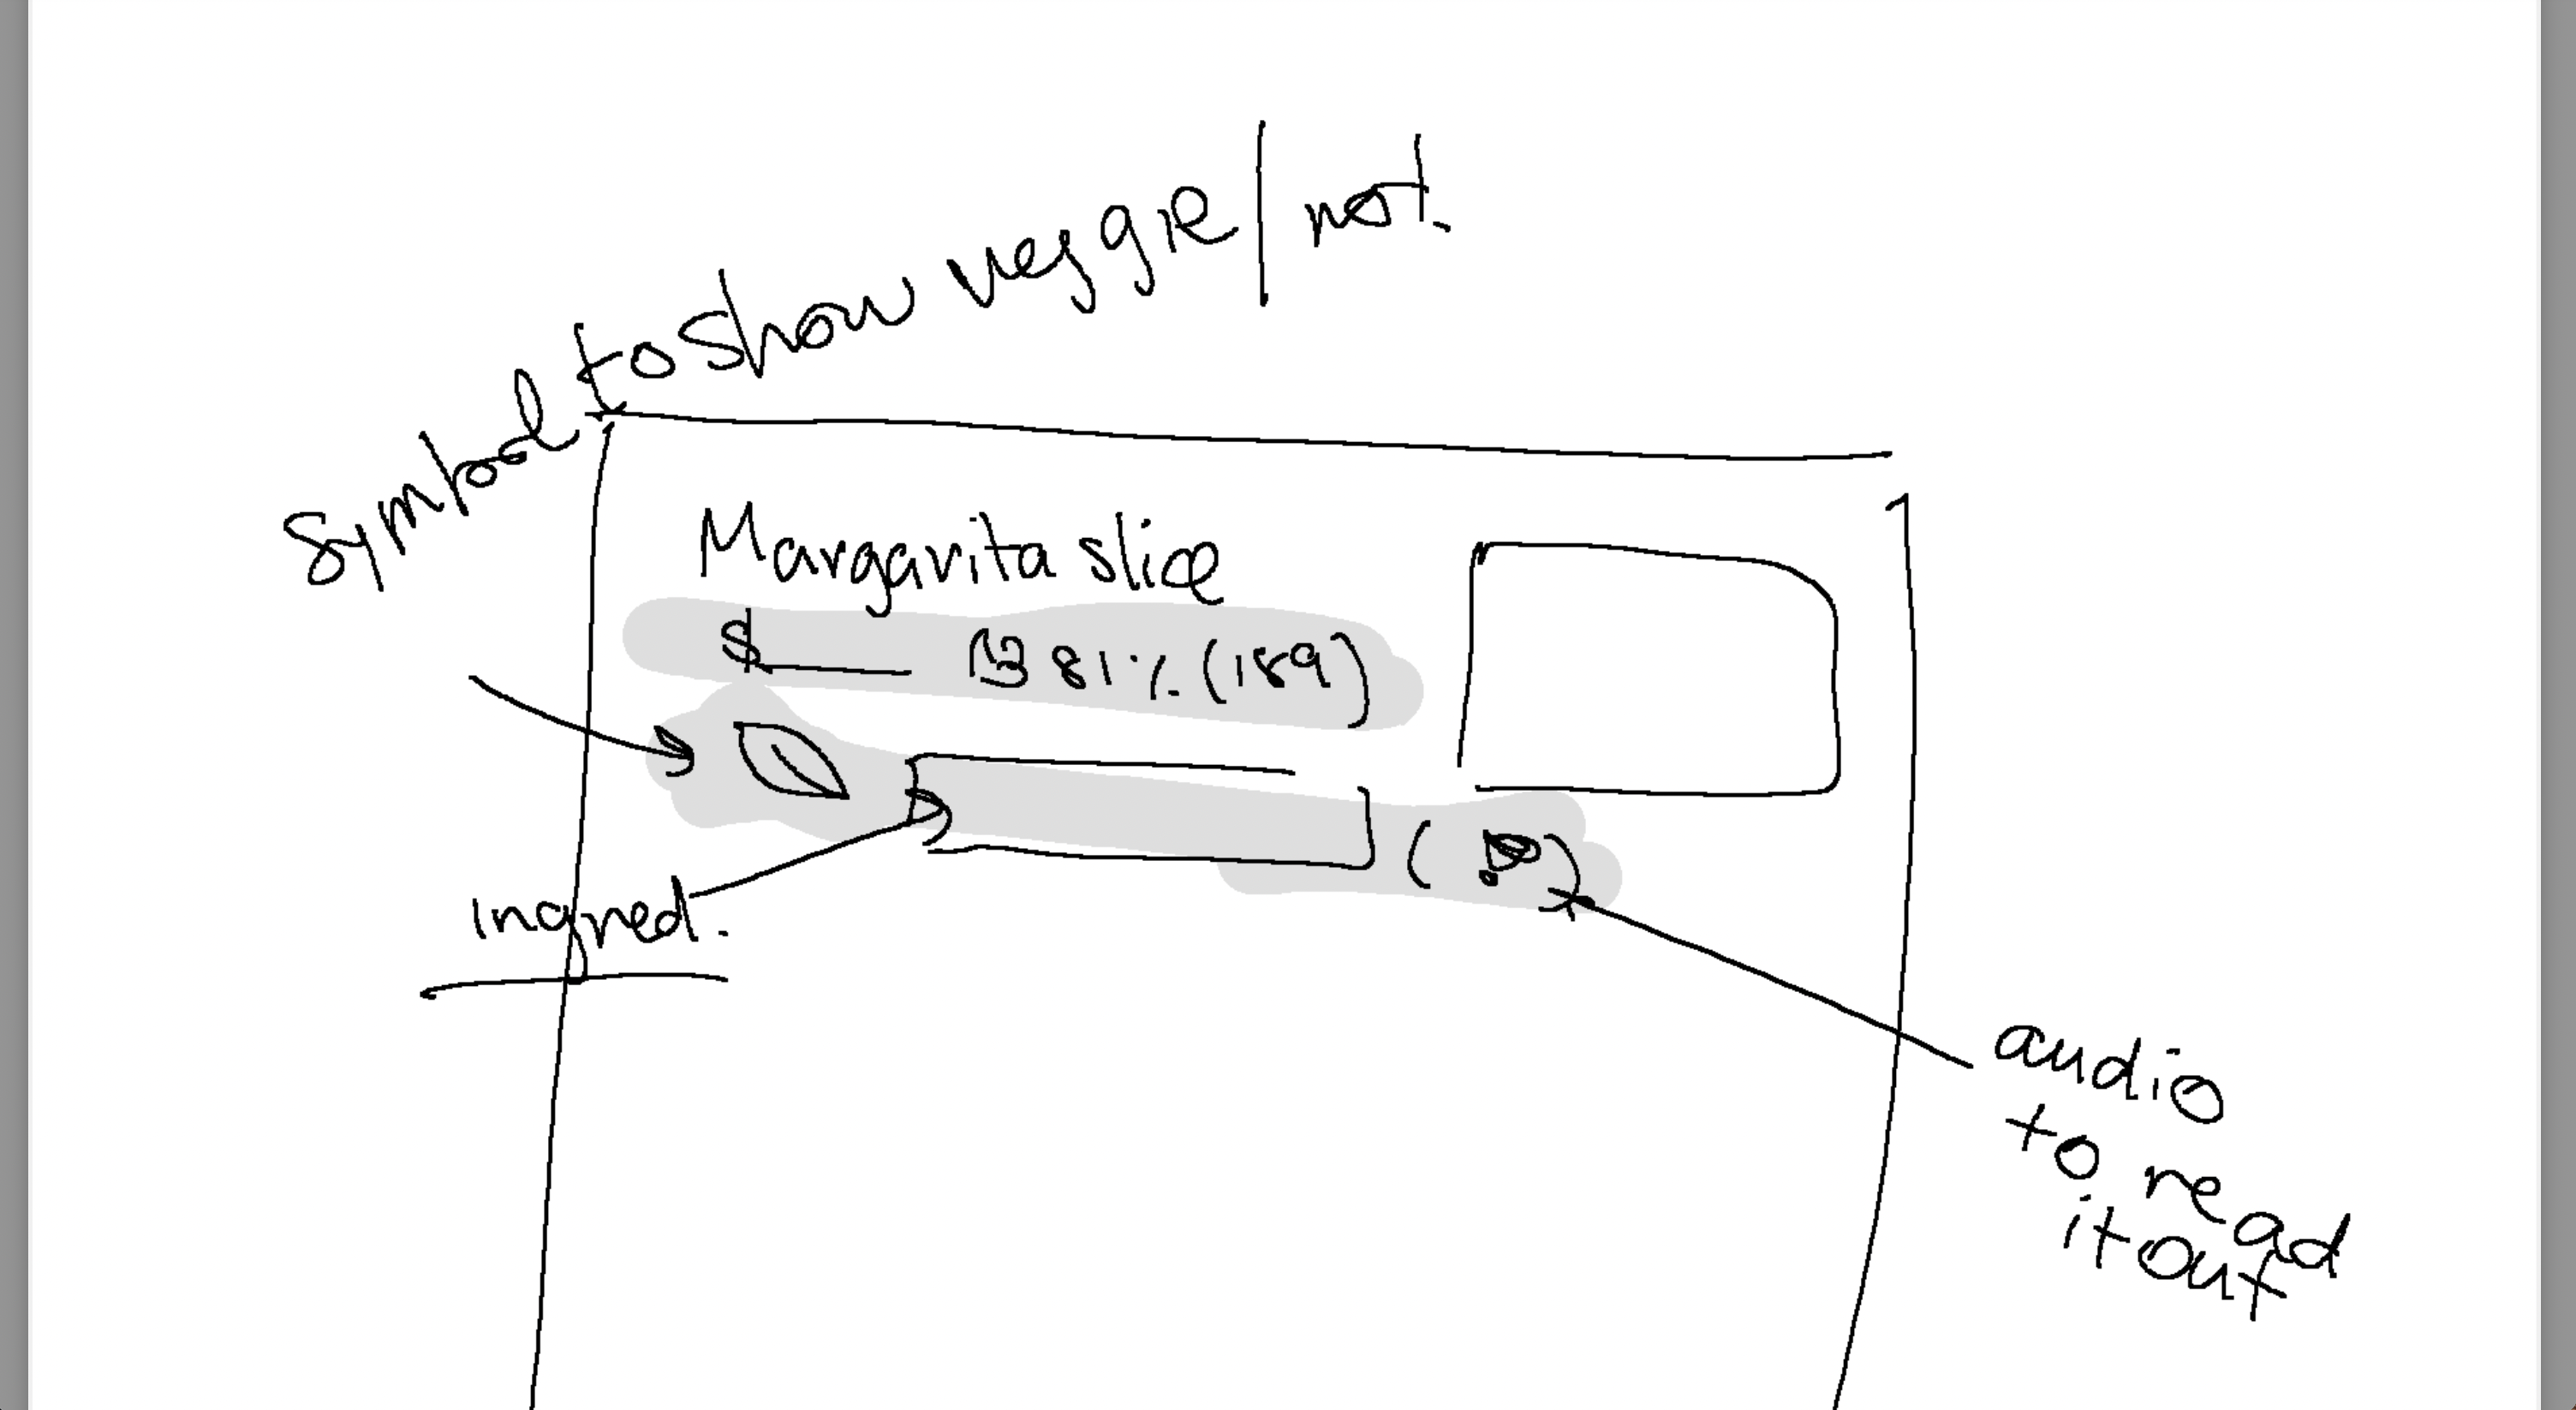 Symbol to show veggie/not.
Margarita slice
$ 81% (189)
ingred.
audio
to read
it out